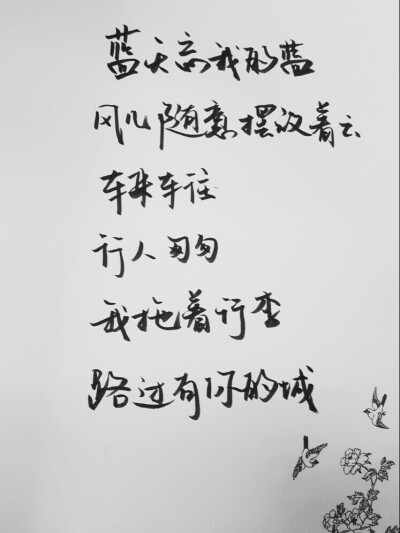 蓝天忘我的蓝
风儿随意摆没着云
车来车往
行人匆匆
我拖着行李
路过有你的城